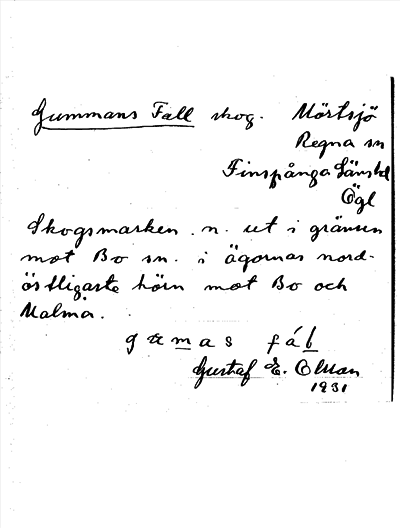 Gummans Fall skog. Mörtsjö
Regna sn
Finspånga Länshd
Ögl
Skogsmarken n. ut i gränsen
mot Bo sn. i ägornas nord-
östligaste hörn mot Bo och
Malma.
gumas fáł
Gustaf E. Olsson
1931